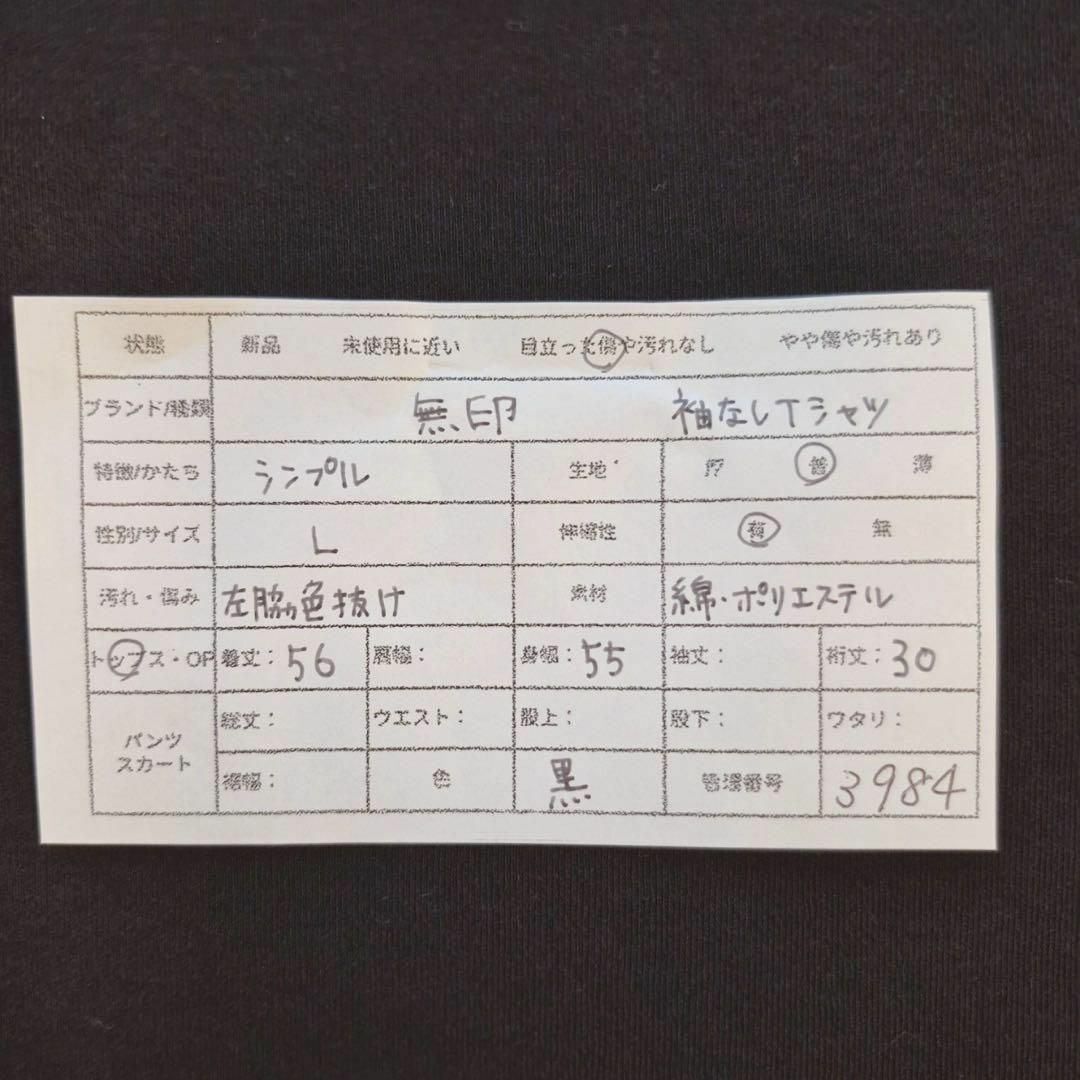 状態 新品 未使用に近い 目立った傷や汚れなし やや傷や汚れあり
ブランド/種類 無印 袖なしTシャツ
特徴/かたち シンプル 生地 厚 普 薄
性別/サイズ L 伸縮性 有 無
汚れ・傷み 左脇色抜け 素材 綿・ポリエステル
トップス・OP 着丈：56 肩幅： 身幅：55 袖丈： 裄丈：30
パンツ スカート 総丈： ウエスト： 股上： 股下： ワタリ：
裾幅： 色 黒 管理番号 3984